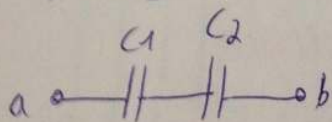 C1 C2
a b